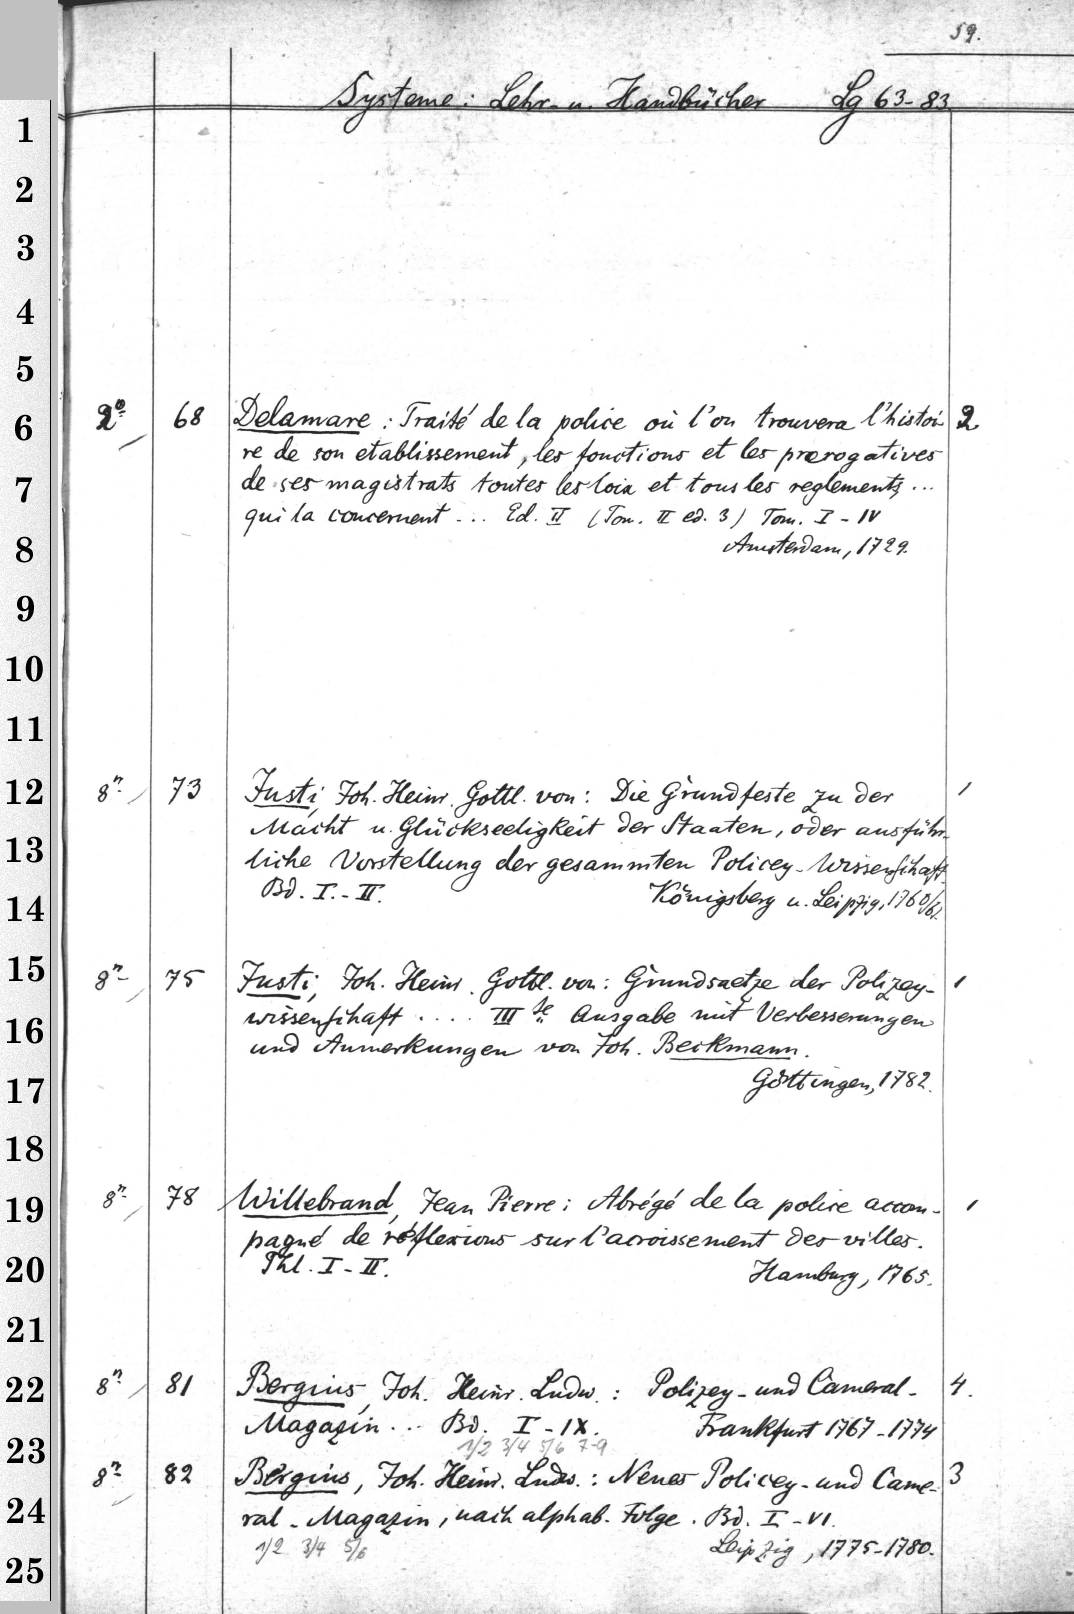 59.
Systeme: Lehr- u. Handbücher Lg 63-83.
1
2
3
4
5
2° 68 Delamare: Traité de la police où l'on trouvera l'histoi 2.
6
re de son etablissement, les fonctions et les prerogatives
7
de ses magistrats toutes les loix et tous les reglements ...
qui la concernent ... Ed. II (Tom. II ed. 3) Tom. I - IV
8
Amsterdam, 1729.
9
10
11
12
8° 73 Justi, Joh. Heinr. Gottl. von: Die Grundfeste zu der 1
Macht u. Glückseeligkeit der Staaten, oder ausführ-
13
liche Vorstellung der gesammten Policey-Wissenschaft.
Bd. I.-II. Königsberg u. Leipzig, 1760/61.
14
15
8° 75 Justi, Joh. Heinr. Gottl. von: Grundsaetze der Polizey- 1
wissenschaft .... III te Ausgabe mit Verbesserungen
16
und Anmerkungen von Joh. Beckmann.
17
Göttingen, 1782.
18
8° 78 Willebrand, Jean Pierre: Abrégé de la police accom- 1
19
pagné de réflexions sur l'acroissement des villes.
20
Thl. I - II. Hamburg, 1765.
21
22
8° 81 Bergius, Joh. Heinr. Ludw.: Polizey- und Cameral- 4.
Magazin ... Bd. I - IX. Frankfurt 1767-1774
23
1/2 3/4 5/6 7-9
8° 82 Bergius, Joh. Heinr. Ludw.: Neues Policey- und Came- 3
24
ral-Magazin, nach alphab. Folge. Bd. I - VI.
1/2 3/4 5/6 Leipzig, 1775-1780.
25